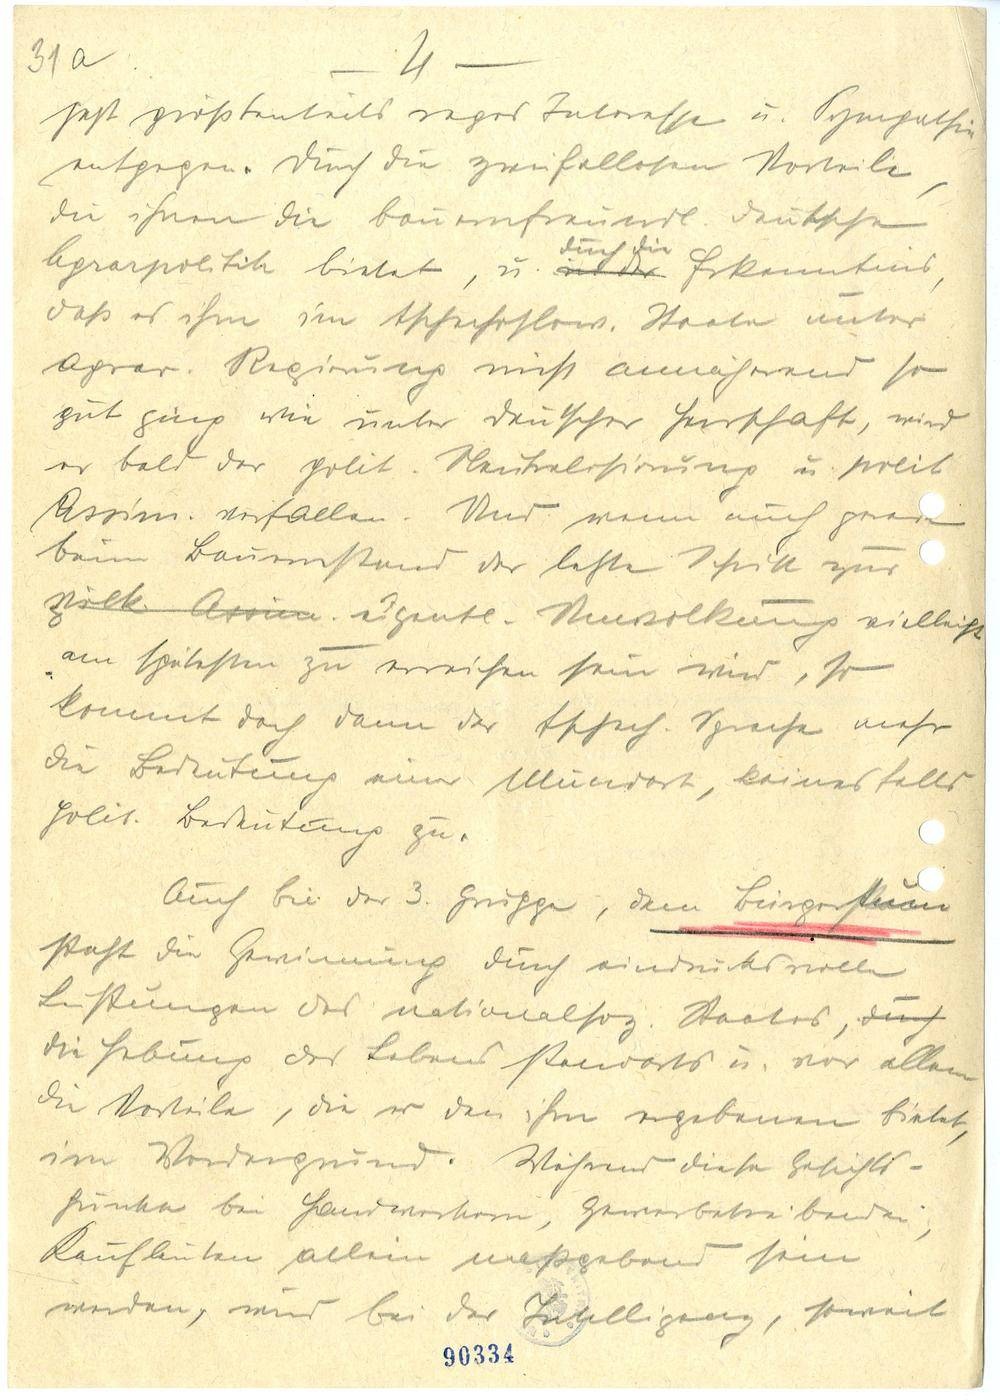 31a
— 4 —
jetzt größtenteils reges Interesse u. Sympathie
entgegen. Durch die zweifellosen Vorteile,
die ihnen die bauernfreundl. deutsche
durch die
Agrarpolitik bietet, u. in der Erkenntnis,
daß es ihm im tschechoslow. Staate unter
agrar. Regierung nicht annähernd so
gut ging wie unter deutscher Herrschaft, wird
er bald der polit. Neutralisierung u. polit
Assim. verfallen. Und wenn auch gerade
beim Bauernstand der letzte Schritt zur
völk. Assim. eigentl. Umvolkung vielleicht
am spätesten zu erreichen sein wird, so
kommt doch dann der tschech. Sprache mehr
die Bedeutung einer Mundart, keinesfalls
polit. Bedeutung zu.
Auch bei der 3. Gruppe, dem
steht die Gewinnung durch eindrucksvolle
Leistungen des nationalsoz. Staates, durch
die Hebung des Lebensstandarts u. vor allem
die Vorteile, die er den ihm ergebenen bietet,
im Vordergrund. Während diese Gesichts-
punkte bei Handwerkern, Gewerbetreibenden,
Kaufleuten allein maßgebend sein
werden, wird bei der Intelligenz, soweit
90334